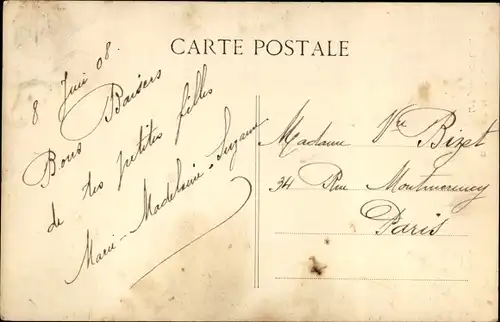 CARTE POSTALE
8 Juin 08.
Bons Baisers
de tes petites filles
Marie-Madeleine-Suzanne
Madame Vve Bizet
34 Rue Montmorency
Paris